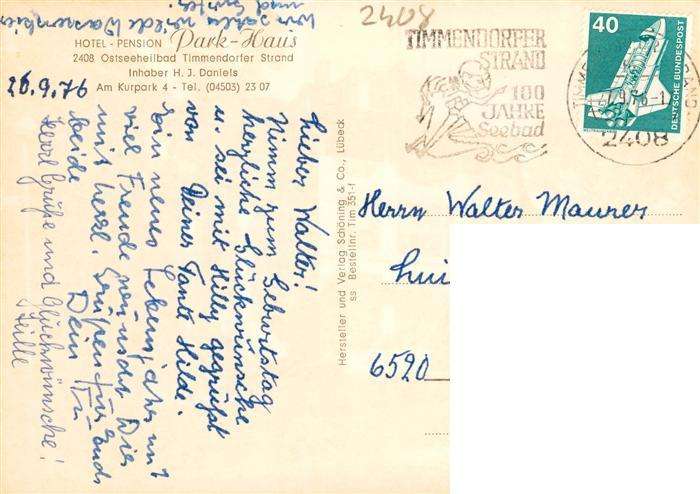 wir sahen wilde Wasser
und Enten
2408
HOTEL - PENSION Park-Haus
2408 Ostseeheilbad Timmendorfer Strand
Inhaber H. J. Daniels
Am Kurpark 4 - Tel. (04503) 23 07
26.9.76
TIMMENDORFER
STRAND
100
JAHRE
Seebad
40
DEUTSCHE BUNDESPOST
2408
Lieber Walter!
Nimm zum Geburtstag
herzliche Glückwünsche
u. sei mit Hilly gegrüßt
von Deiner Tante Hilde.
Sein neues Lebensjahr und
viel Freude wünscht Dir
mit herzl. Grüßen für Euch
beide Dein
Herzl. Grüße und Glückwünsche!
Hersteller und Verlag Schöning & Co., Lübeck
ss Bestellnr. Tim 351-f
Herrn Walter Maurer
6520